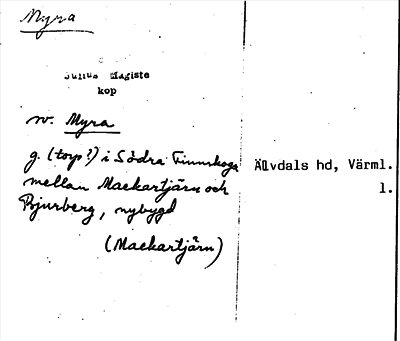 Myra
Julius Magiste
kop
nv. Myra
g. (torp?) i Södra Finnskoga
mellan Mackartjärn och
Bjurberg, nybygd
(Mackartjärn)
Älvdals hd, Värml.
l.